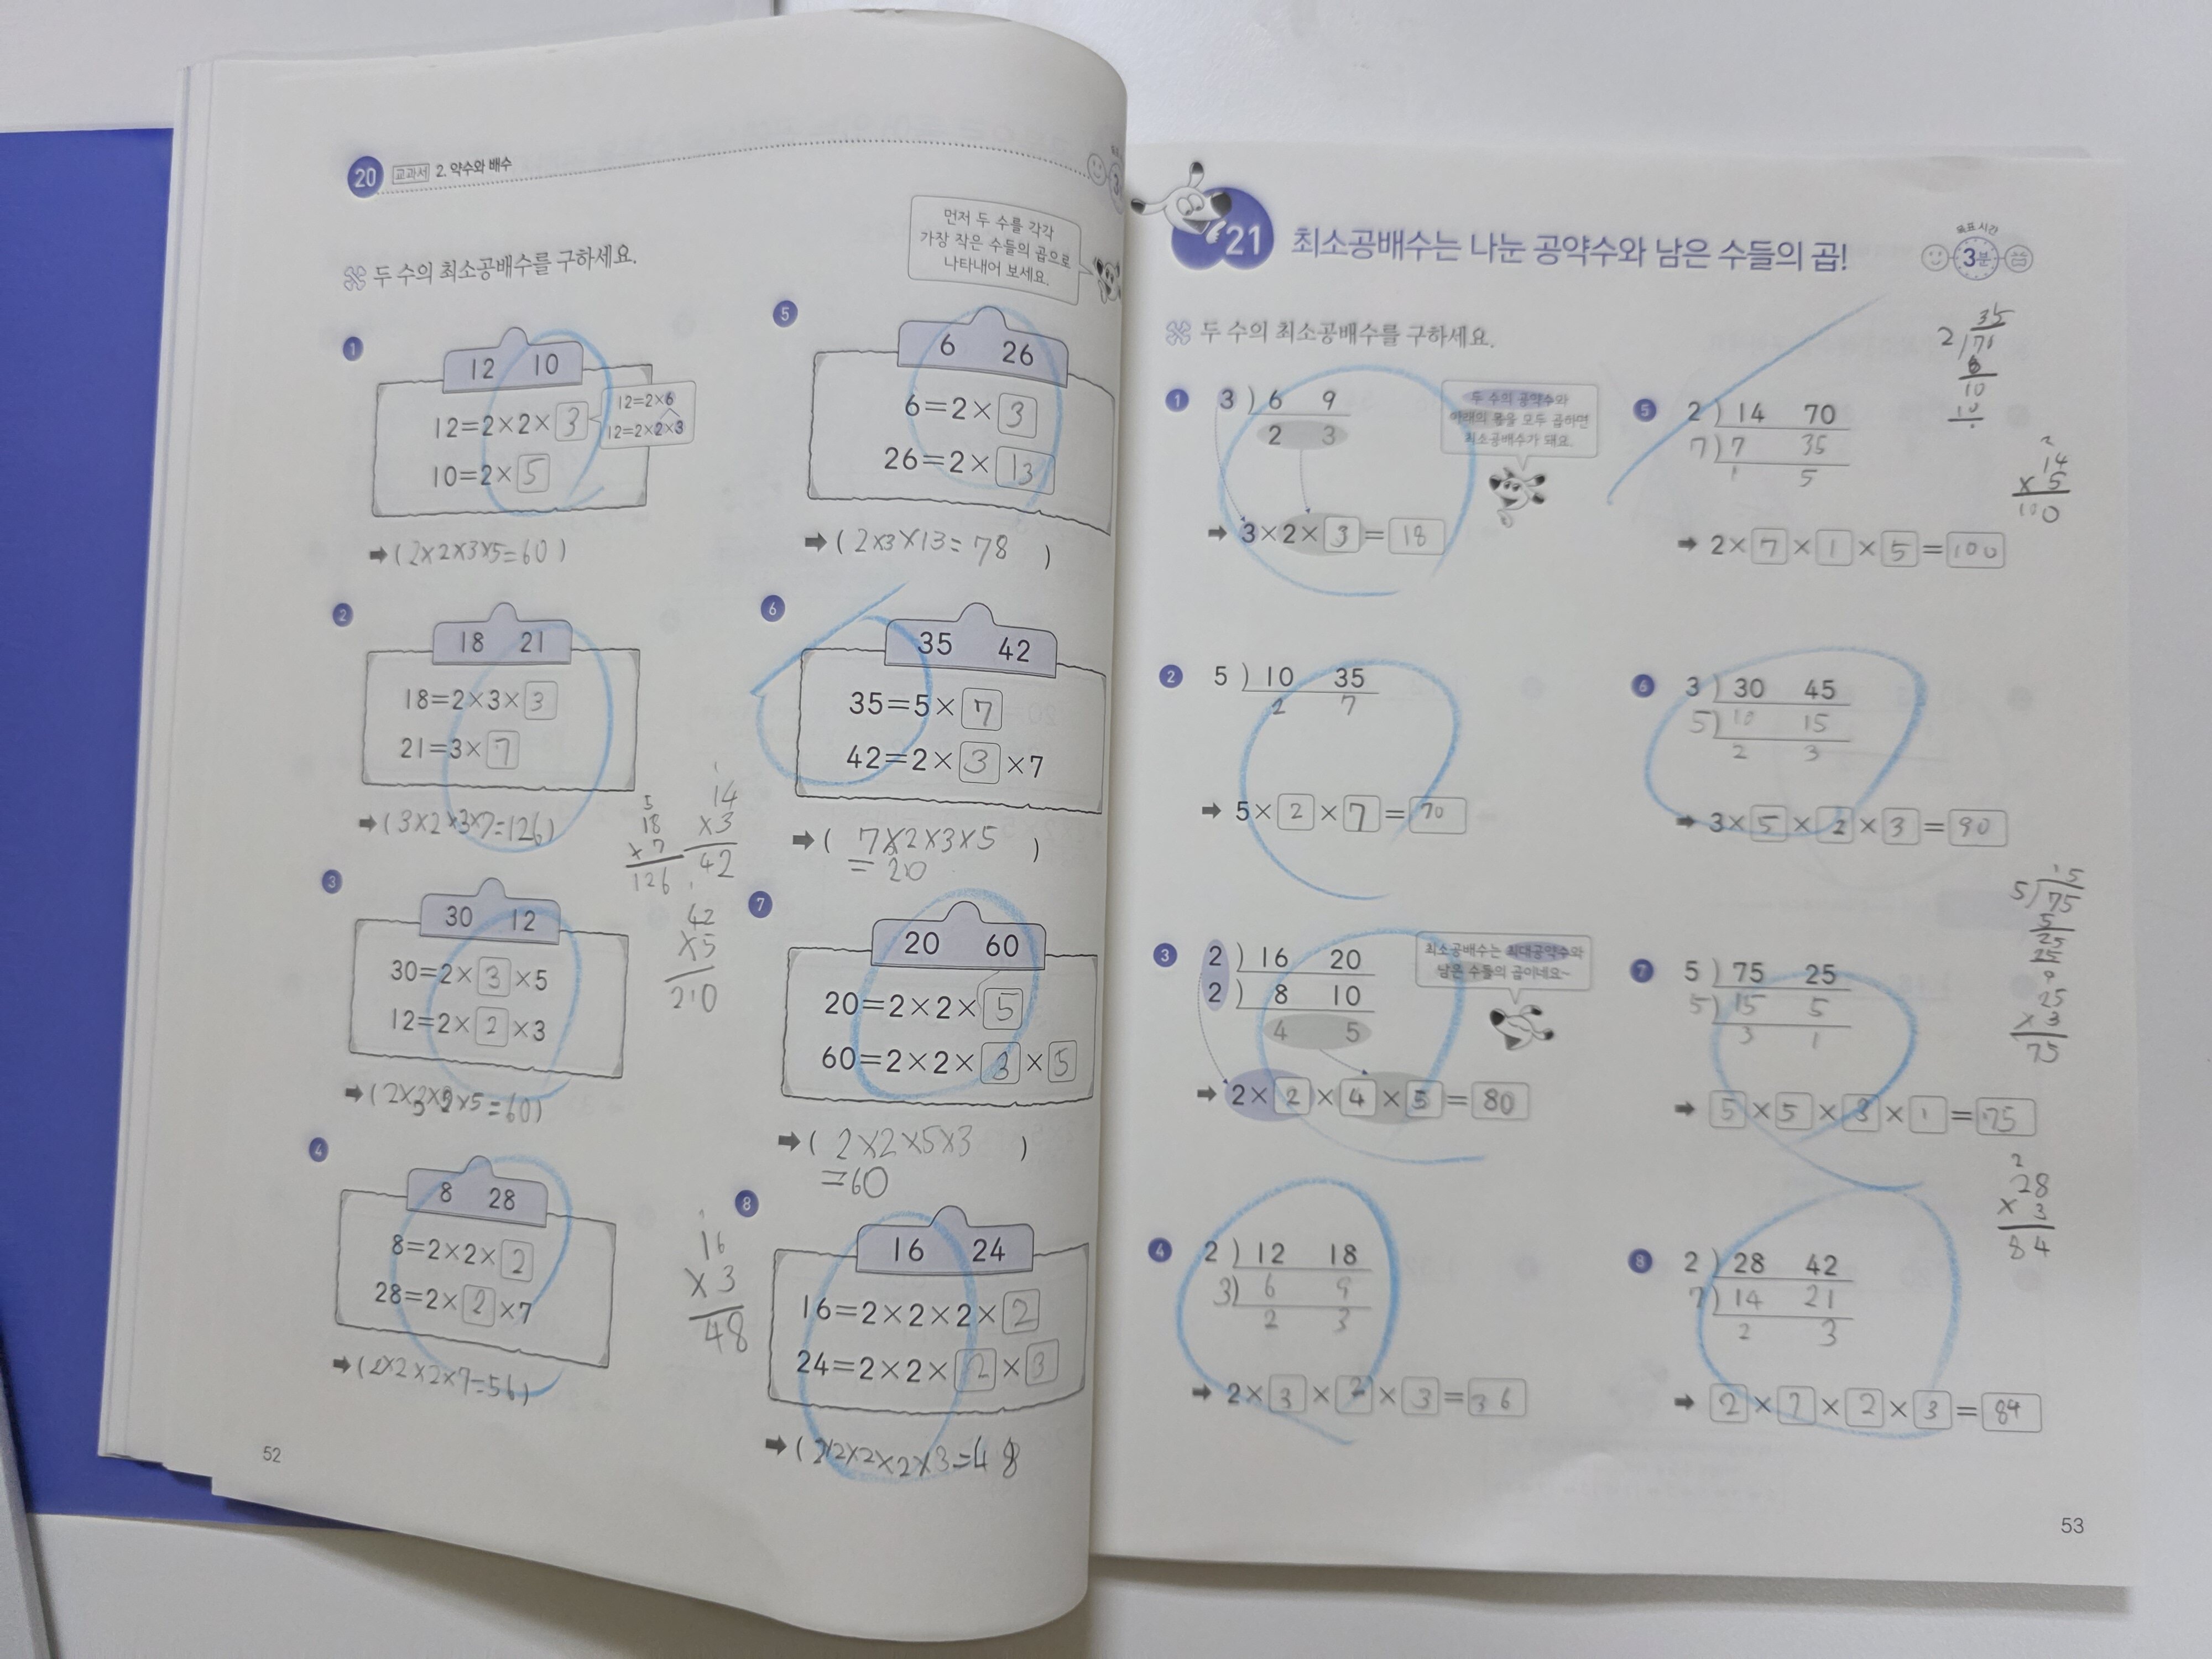 20 교과서 2. 약수와 배수
먼저 두 수를 각각
가장 작은 수들의 곱으로
나타내어 보세요.
두 수의 최소공배수를 구하세요.
1
12 10
12=2×2×3
10=2×5
12=2×6
12=2×2×3
➡(2×2×3×5=60)
2
18 21
18=2×3×3
21=3×7
➡(3×2×3×7=126)
5
18
×7
126
1
14
×3
42
3
30 12
30=2×3×5
12=2×2×3
➡(2×3×2×5=60)
1
42
×5
210
4
8 28
8=2×2×2
28=2×2×7
➡(2×2×2×7=56)
5
6 26
6=2×3
26=2×13
➡(2×3×13=78)
6
35 42
35=5×7
42=2×3×7
➡( 7×2×3×5 )
=210
7
20 60
20=2×2×5
60=2×2×3×5
➡( 2×2×5×3 )
=60
1
16
×3
48
8
16 24
16=2×2×2×2
24=2×2×2×3
➡(2×2×2×2×3=48
52
21 최소공배수는 나눈 공약수와 남은 수들의 곱!
목표 시간
3분
두 수의 최소공배수를 구하세요.
1
3)6 9
2 3
두 수의 공약수와
아래의 몫을 모두 곱하면
최소공배수가 돼요.
➡ 3×2×3=18
2
5)10 35
2 7
➡ 5×2×7=70
3
2)16 20
2)8 10
4 5
최소공배수는 최대공약수와
남은 수들의 곱이네요~
➡ 2×2×4×5=80
4
2)12 18
3)6 9
2 3
➡ 2×3×2×3=36
5
2)14 70
7)7 35
1 5
➡ 2×7×1×5=100
35
2)70
6
10
10
2
14
×5
100
6
3)30 45
5)10 15
2 3
➡ 3×5×2×3=90
7
5)75 25
5)15 5
3 1
➡ 5×5×3×1=75
15
5)75
5
25
25
0
25
×3
75
8
2)28 42
7)14 21
2 3
➡ 2×7×2×3=84
2
28
×3
84
53